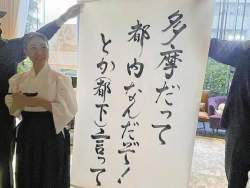 多摩だって
都内なんだぞ!
とか(都下)言って